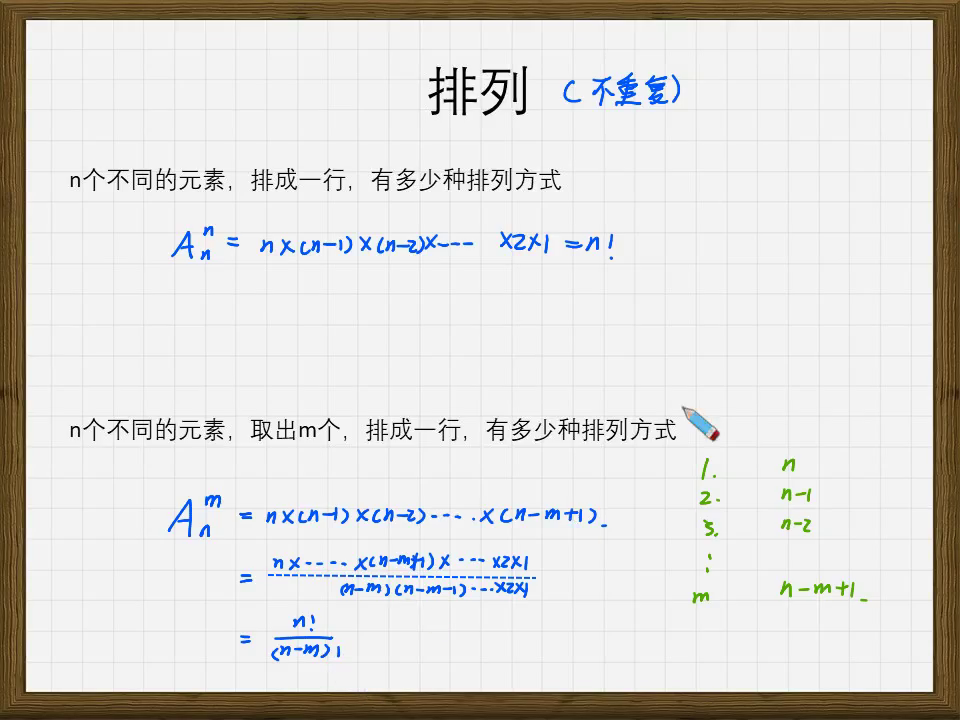 排列 (不重复)
n个不同的元素，排成一行，有多少种排列方式
Aₙⁿ = n×(n-1)×(n-2)×···· ×2×1 = n!
n个不同的元素，取出m个，排成一行，有多少种排列方式
Aₙᵐ = n×(n-1)×(n-2)·····×(n-m+1).
= n×····×(n-m+1)×···×2×1
(n-m)(n-m-1)···×2×1
= n!
(n-m)!
1. n
2. n-1
3. n-2
⋮
m n-m+1.